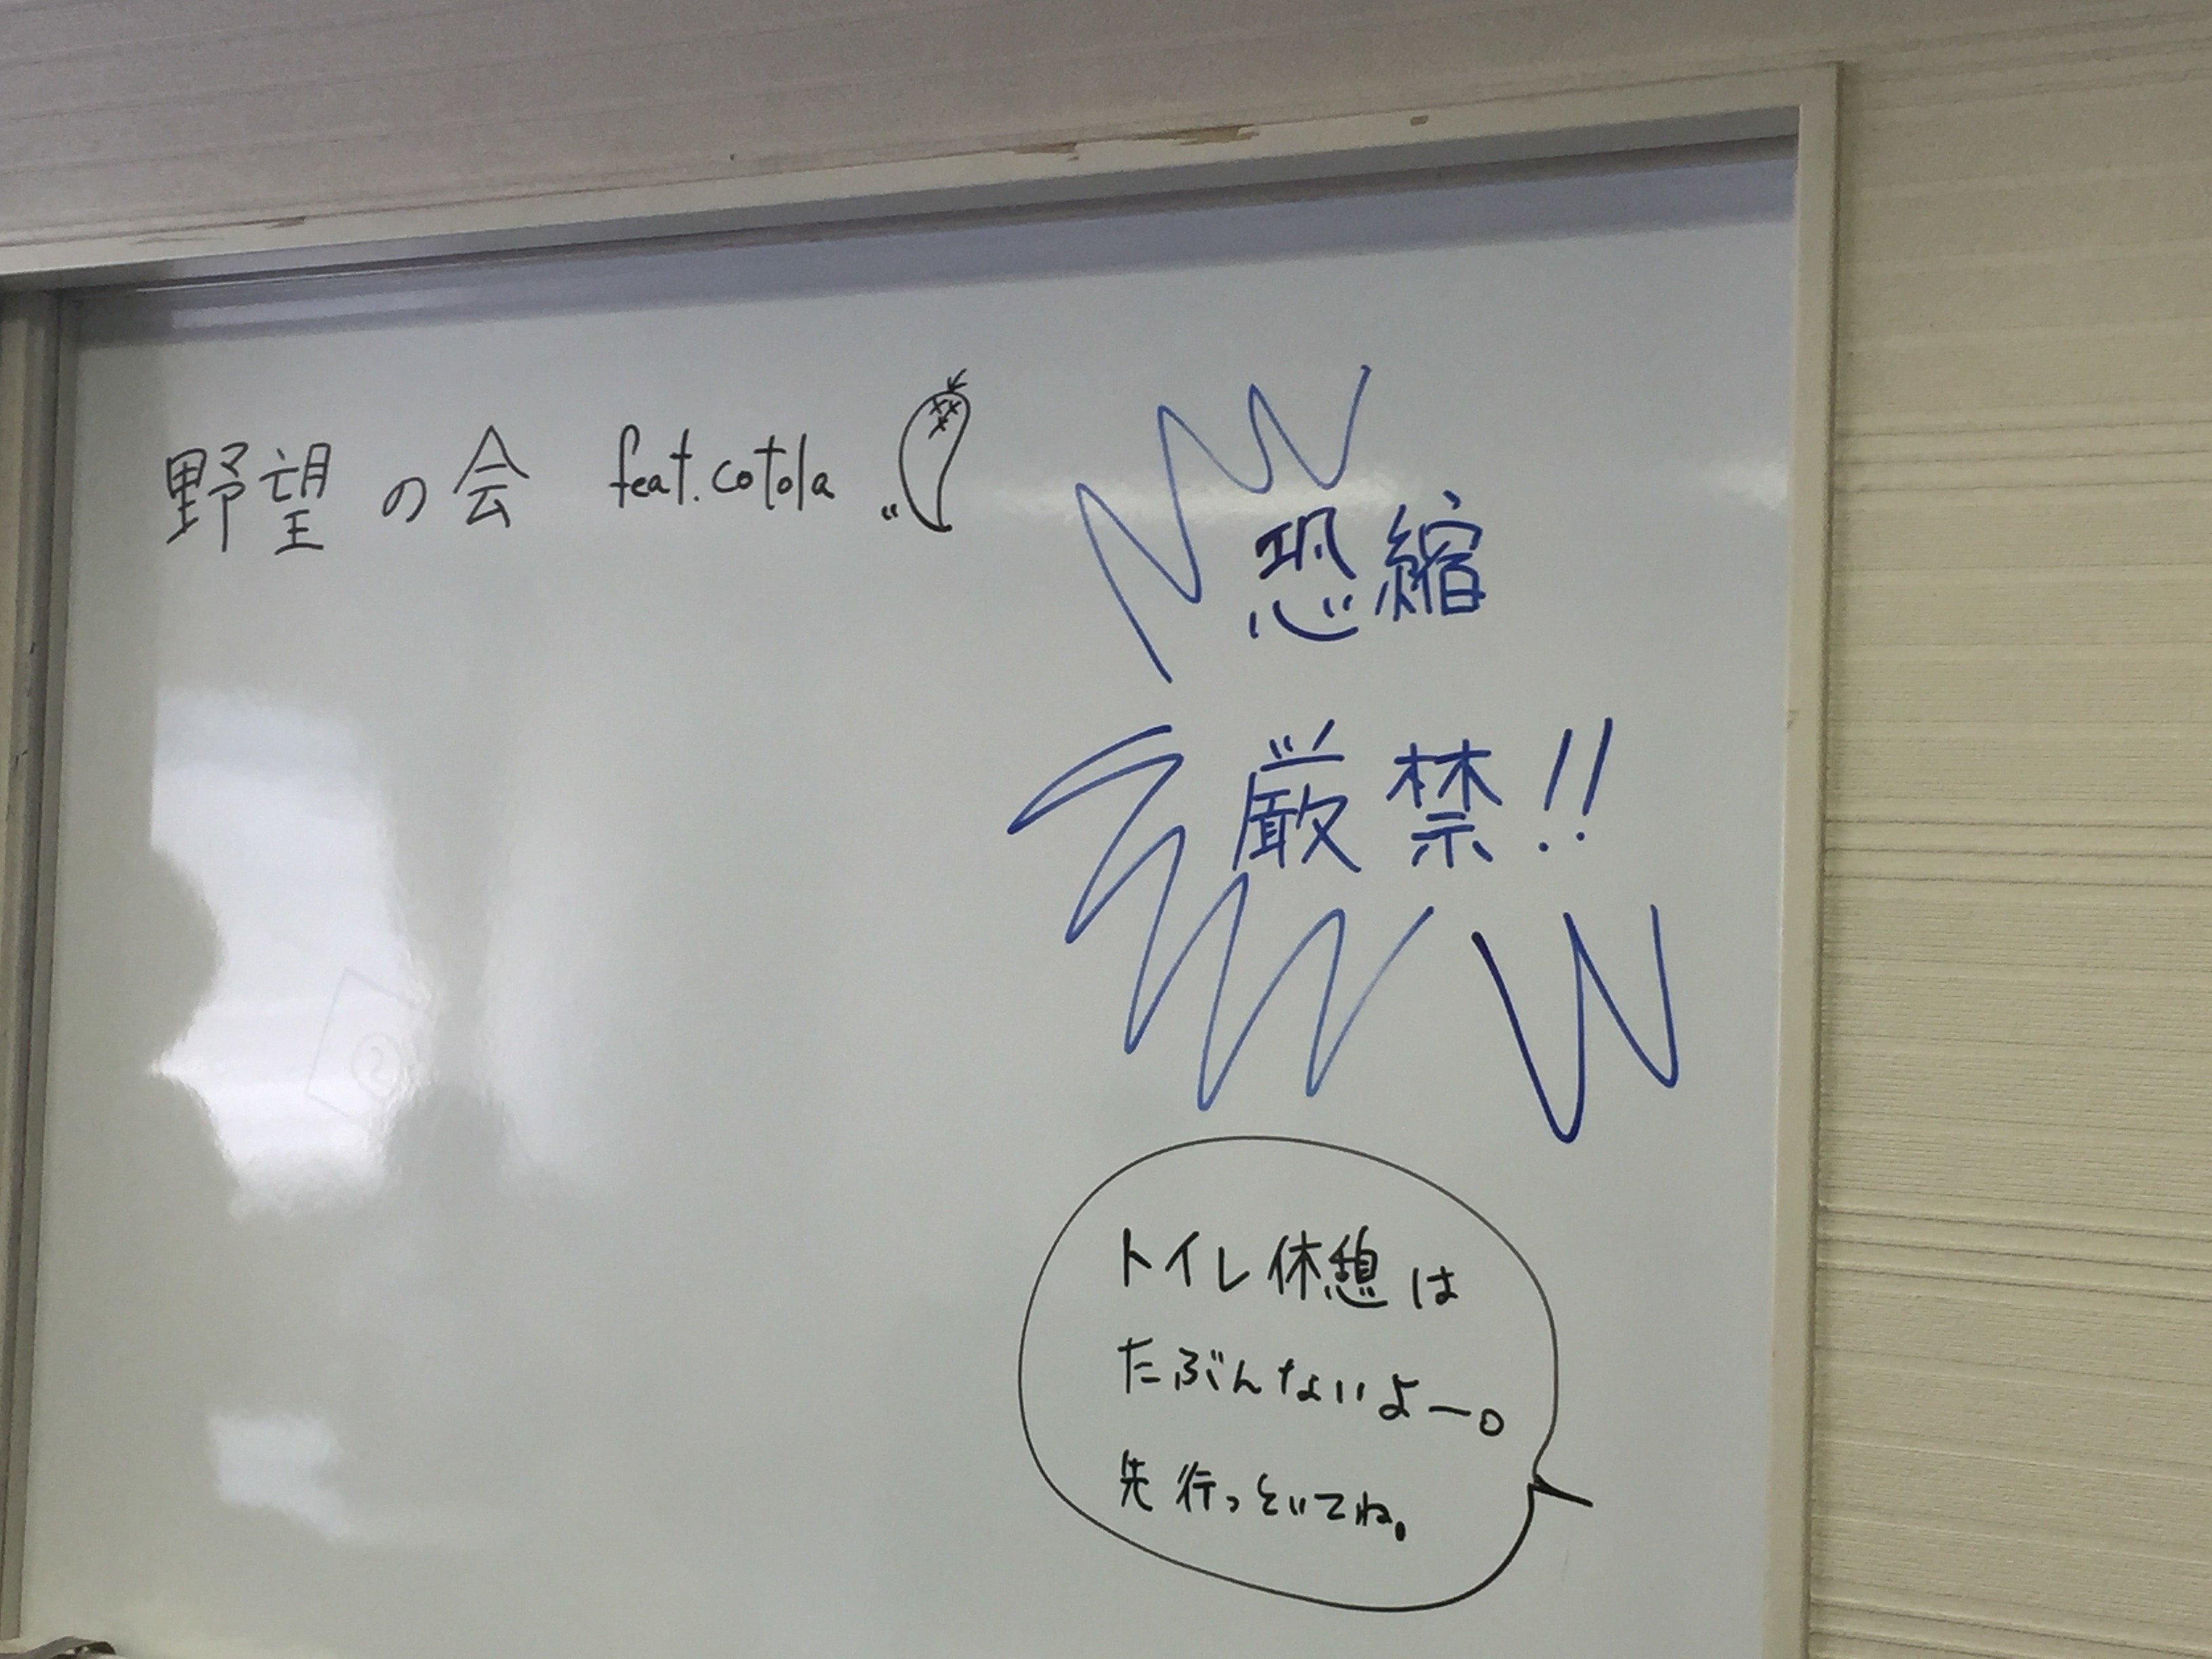 野望の会 feat.cotola
恐縮
厳禁!!
トイレ休憩は
たぶんないよー。
先行っといてね。